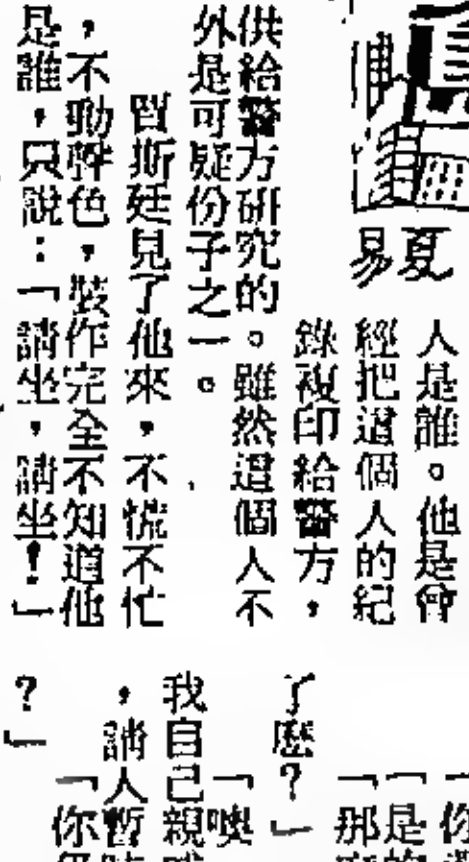 夏易
人是誰。他是曾
經把這個人的紀
錄複印給警方，
供給警方研究的。雖然這個人不
外是可疑份子之一。
賈斯廷見了他來，不慌不忙
，不動聲色，裝作完全不知道他
是誰，只說：「請坐，請坐！」
「你
「是
「那
了麽？」
「噢
我自己親
，請人暫
「你
？」